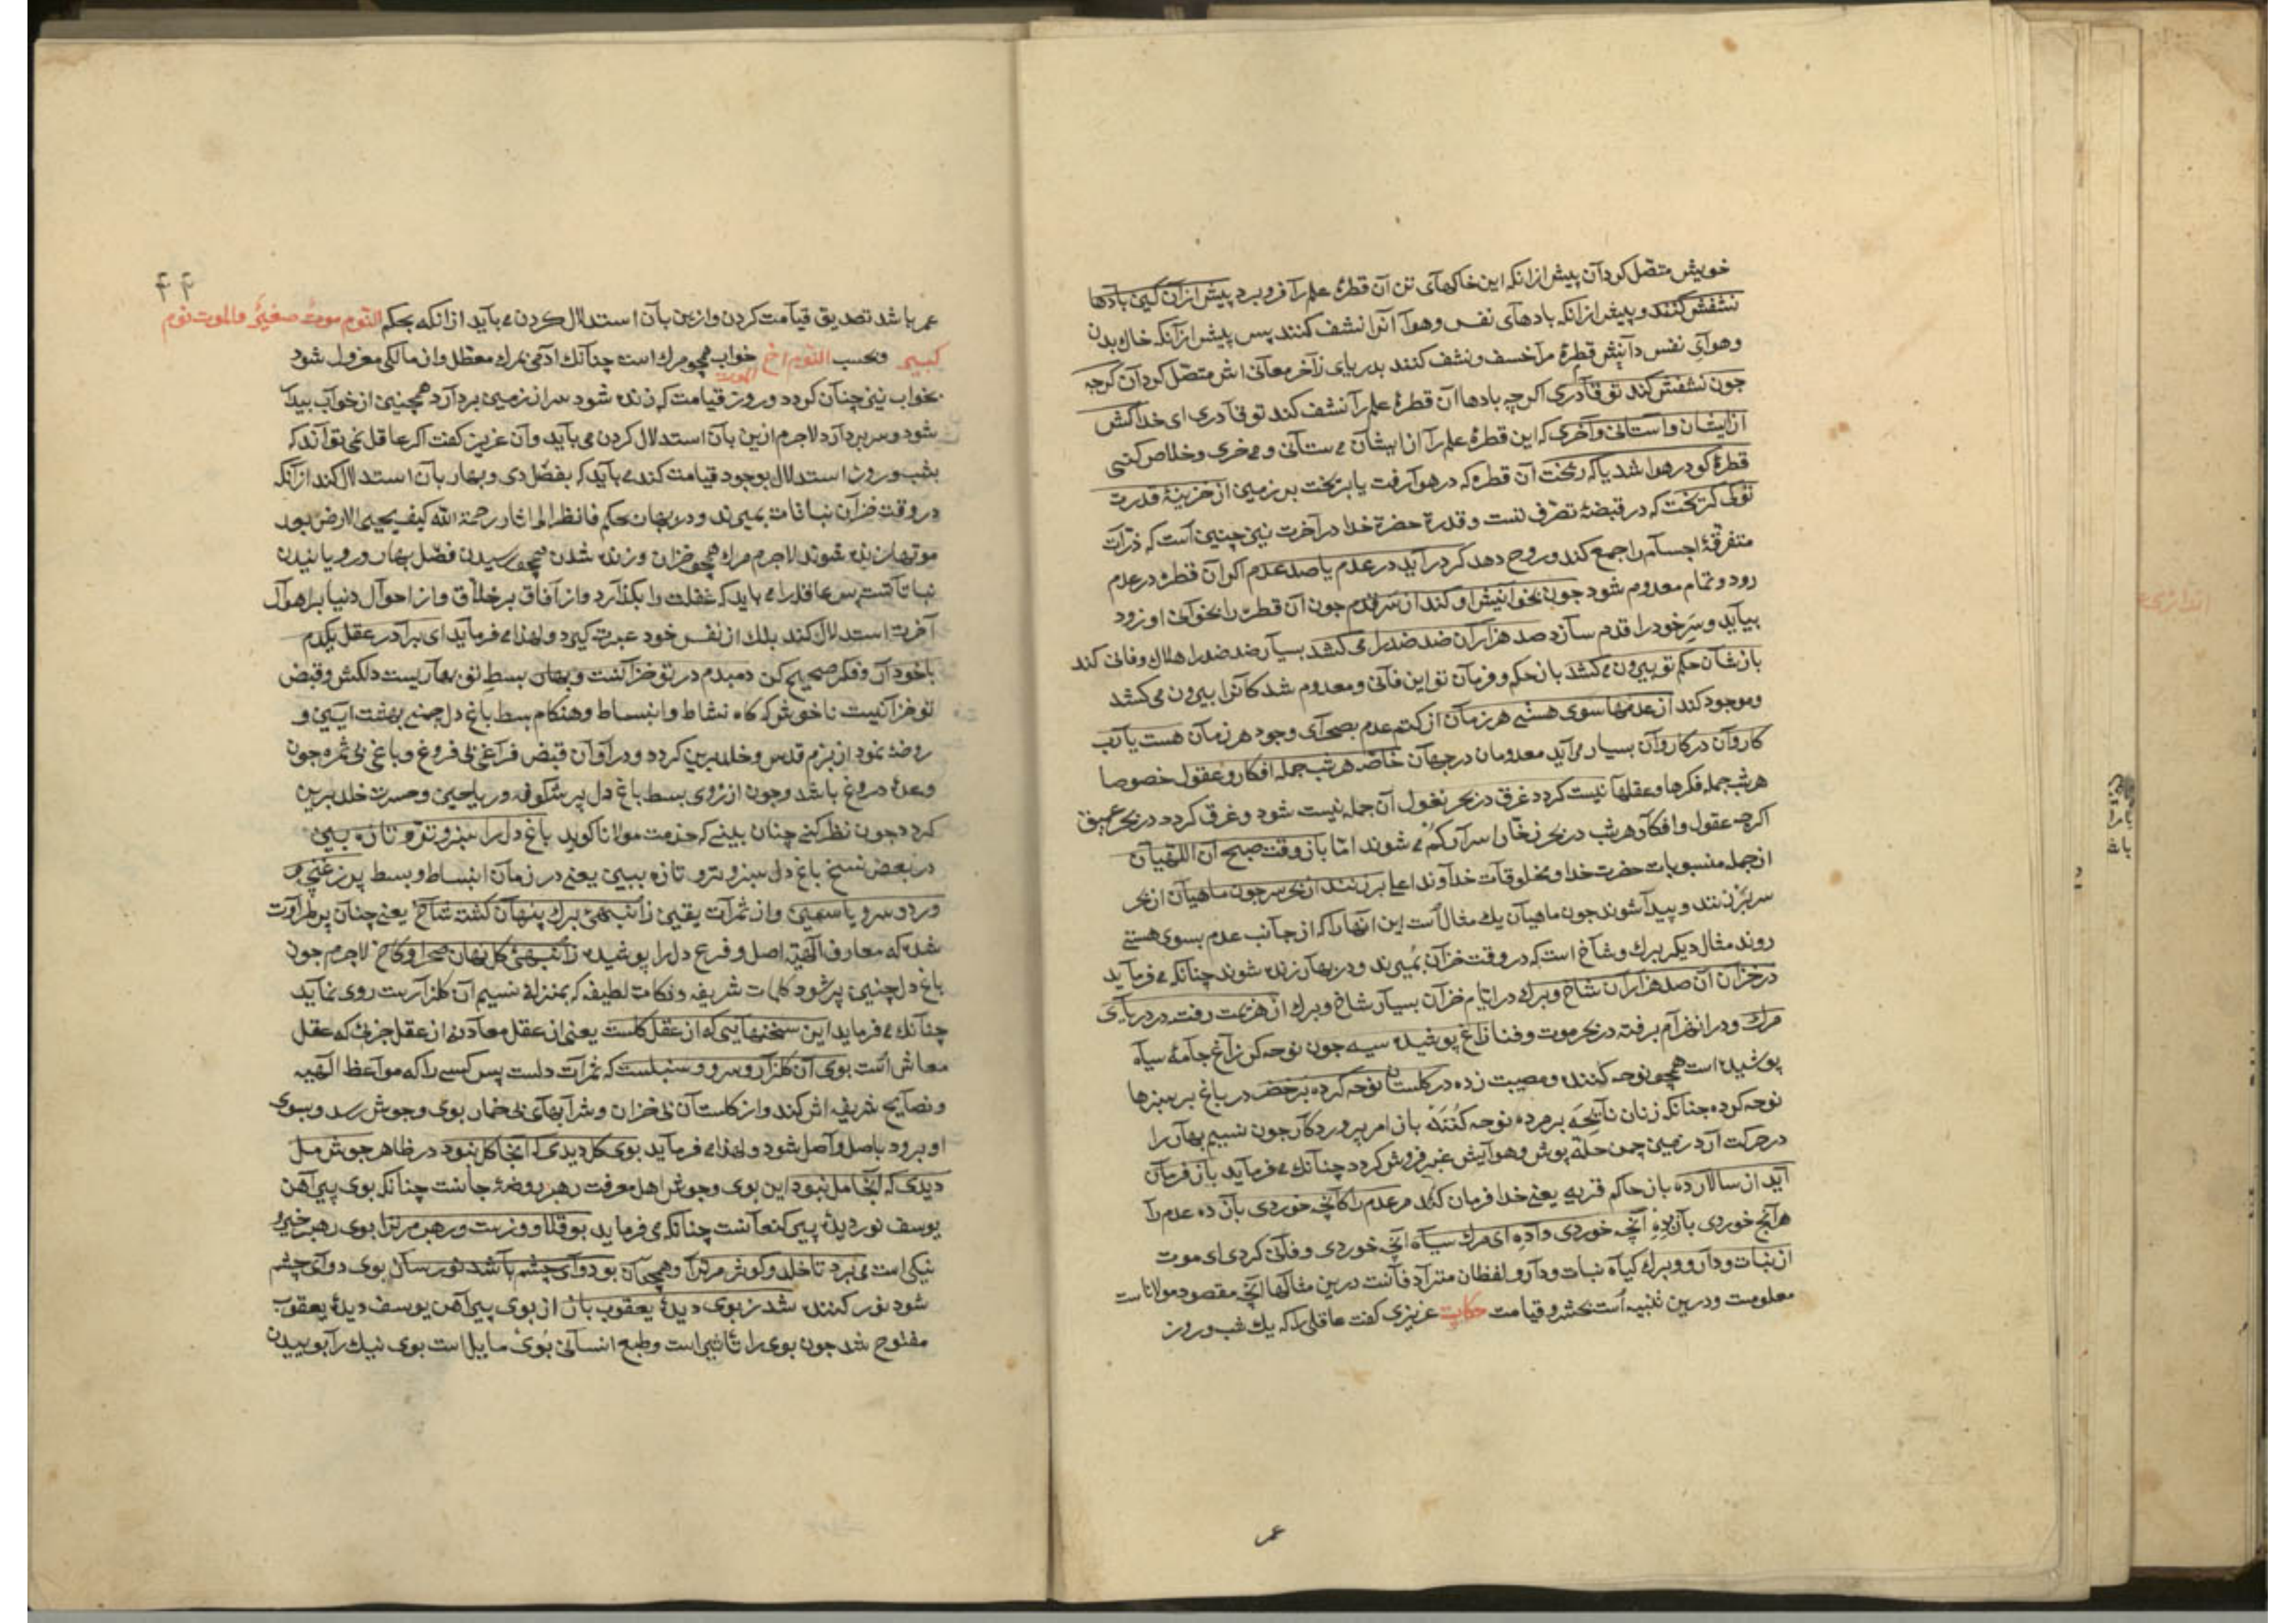 خویش متصل کردان پیش ازانکه این خاکهای تن آن قطرهٔ علم را فرو برد پیش ازان کین بادها
نشفش کنند و پیش ازانکه بادهای نفس و هوا آنرا نشف کنند پس پیش ازآنکه خاك بدن
وهوای نفس دانش قطرهٔ مرا خسف ونشف کنند بدریای زآخر معانی اش متصل کردان کرچه
چون نشفش کند تو قادری اکرچه بادها آن قطرهٔ علم را نشف کند تو قادری ای خدا کش
ازایشان واستانی وآخری که این قطرهٔ علم را از ایشان می ستانی و می خری و خلاص کنی
قطرهٔ کو در هوا شد یا که ریخت آن قطره که در هوا رفت یا بریخت بر زمین از خزینهٔ قدرت
توکی کریخت که در قبضهٔ تصرف تست و قدرة حضرة خدا در آخرت نیز چنین است که ذرات
متفرقهٔ اجسام را جمع کند و روح دهد کر درآید در عدم یا صد عدم اکر آن قطره در عدم
رود و تمام معدوم شود چون بخوانیش او کند از سر قدم چون آن قطره را بخوانی او زود
بیاید و سر خود را قدم سازد صد هزاران ضد ضد را می کشد بسیار ضد ضد را هلاك و فانی کند
بازشان حکم تو بیرون می کشد باز حکم و فرمان تو این فانی و معدوم شدکانرا بیرون می کشد
وموجود کند از عدمها سوی هستی هر زمان از کتم عدم بصحرای وجود هر زمان هست یا رب
کاروان در کاروان بسیار می آید معدومان در جهان خاصه هر شب جمله افکار و عقول خصوصا
هر شب جمله فکرها وعقلها نیست کردد غرق در بحر نغول آن جمله نیست شود و غرق کردد در بحر عمیق
اکرچه عقول و افکار هر شب در بحر زخار اسرار کم می شوند اما باز وقت صبح آن اللهیان
از جمله منسوبات حضرت خدا و مخلوقات خداوند اعلی برزنند از بحر سر چون ماهیان از بحر
سر برزنند و پیدا شوند چون ماهیان یك مثال است این آنها را که از جانب عدم بسوی هستی
روند مثال دیکر برك و شاخ است که در وقت خزان بمیرند و در بهار زنده شوند چنانکه می فرماید
در خزان آن صد هزاران شاخ و برك در ایام خزان بسیار شاخ و برك از هزیمت رفته در دریای
مرك و در انهزام برفته در بحر موت و فنا زاغ پوشیده سیه چون نوحه کر زاغ جامهٔ سیاه
پوشیده است همچو نوحه کننده و مصیبت زده در کلستان نوحه کرده بر خضر در باغ بر سبزها
نوحه کرده چنانکه زنان نایحه بر مرده نوحه کننده باز امر پروردکار چون نسیم بهار را
در حرکت آرد زمین چمن حله پوش و هوایش عنبر فروش کردد چنانك می فرماید باز فرمان
آید از سالار ده باز حاکم قریه یعنی خدا فرمان کند مر عدم را کانچه خوردی باز ده عدم را
هرآنچ خوردی باز بده آنچه خوردی واده ای مرك سیاه آنچه خوردی و فانی کردی ای موت
از نبات و دارو و برك کیاه نبات و دارو لفظان مترادفانست درین مثالها آنچه مقصود مولاناست
معلومست و درین تنبیه است بحشر و قیامت حکایت عزیزی کفت عاقلی را که یك شب و روز
عمر
۴۴
عمر باشد تصدیق قیامت کردن وازین بان استدلال کردن می باید ازانکه بحکم النوم موت صغیر والموت نوم
کبیر وبحسب النوم اخ الموت خواب همچو مرك است چنانك ادمی بمرك معطل و از مالکی معزول شود
بخواب نیز چنان کردد و روز قیامت که زنده شود سر از زمین بردارد همچنین از خواب بیدار
شود و سر بردارد لاجرم ازین بان استدلال کردن می باید و آن عزیز کفت اکر عاقل نمی تواند که
بشب و روز استدلال بوجود قیامت کند می باید که بفصل دی و بهار بان استدلال کند ازآنکه
در وقت خزان نباتات بمیرند و در بهار بحکم فانظر الی اثار رحمة الله کیف یحیی الارض بعد
موتها زنده شوند لاجرم مرك همچو خزان و زنده شدن همچو رسیدن فصل بهار و رویانیدن
نباتاتست پس عاقل را می باید که غفلت را بکذارد و از آفاق بر خلاق و از احوال دنیا بر اهوال
آخرت استدلال کند بلك از نفس خود عبرت کیرد و لهذا می فرماید ای برادر عقل یکدم
باخود آر و فکر صحیح کن دمبدم در تو خزانست و بهار بسط تو بهاریست دلکش و قبض
تو خزانیست ناخوش که کاه نشاط وانبساط وهنکام بسط باغ دل چمنی بهشت آیین و
روضهٔ نمود از بزم قدس و خلد برین کردد و در آوان قبض فراغی بی فروغ و باغی بی ثمره چون
وعدهٔ دروغ باشد و چون از روی بسط باغ دل پر شکوفه و ریاحین و حسرت خلد برین
کردد چون نظر کنی چنان بینی که حضرت مولانا کوید باغ دل را سبز و تر و تازه بین
در بعض نسخ باغ دل سبز و تر و تازه ببین یعنی در زمان انبساط و بسط پر ز غنچه و
ورد و سرو و یاسمین و از ثمرات یقین ز انبهی برك پنهان کشته شاخ یعنی چنان پر طراوت
شده که معارف الهیه اصل و فرع دل را پوشیده ز انبهی کل نهان صحرا و کاخ لاجرم چون
باغ دل چنین پر شود کلمات شریفه و نکات لطیفه که بمنزله نسیم آن کلزارست روی نماید
چنانك می فرماید این سخنهایی که از عقل کلست یعنی از عقل معادنه از عقل جزئی که عقل
معاش است بوی آن کلزار و سرو و سنبلست که ثمرات دلست پس کسی را که مواعظ الهیه
و نصایح شریفه اش کند و از کلستان بی خزان و شرابهای بی خمار بوی و جوش رسد و بسوی
او برود باصل واصل شود و لهذا می فرماید بوی کل دیدی که انجا کل نبود در ظاهر جوش مل
دیدی که آنجا مل نبود این بوی و جوش اهل معرفت رهبر روضهٔ جانست چنانکه بوی پیراهن
یوسف نور دیدهٔ پیر کنعانست چنانکه می فرماید بو قلاووزست و رهبر مر ترا بوی رهبر خیر و
نیکی است می برد تا خلد و کوثر مر ترا و همچنان بو دوای چشم باشد نورسان بوی دوای چشم
شود نور کننده شد ز بویی دیدهٔ یعقوب باز از بوی پیراهن یوسف دیدهٔ یعقوب
مفتوح شد چون بوی را تاثیر است و طبع انسانی بوی مایل است بوی نیك را بوییدن